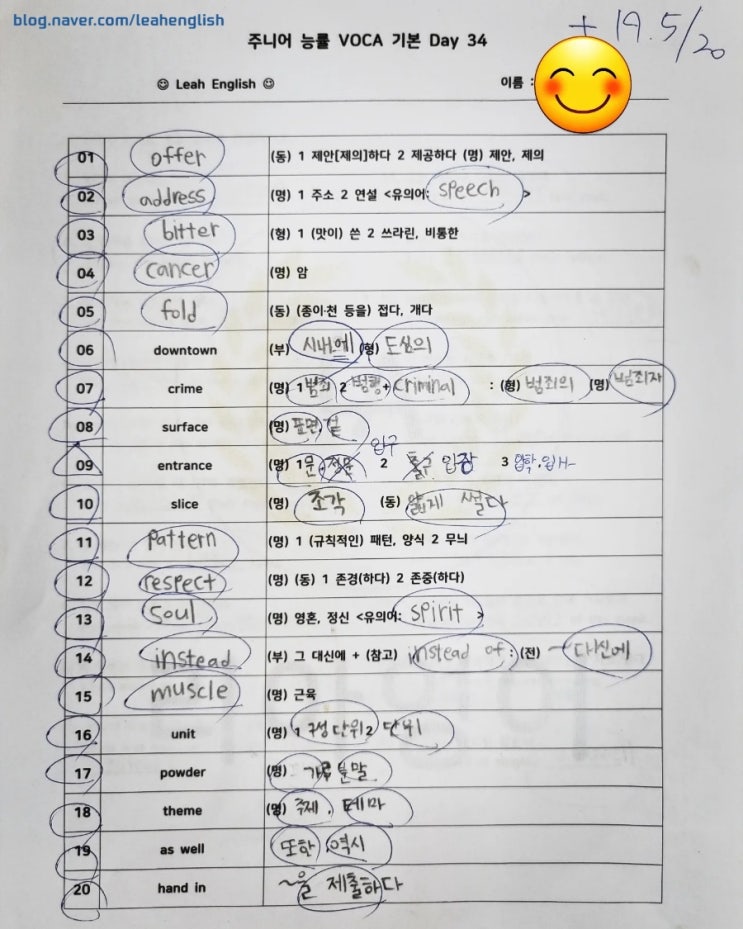 blog.naver.com/leahenglish
+ 19.5/20
주니어 능률 VOCA 기본 Day 34
☺ Leah English ☺ 이름 :
01 offer (동) 1 제안[제의]하다 2 제공하다 (명) 제안, 제의
02 address (명) 1 주소 2 연설 <유의어: speech >
03 bitter (형) 1 (맛이) 쓴 2 쓰라린, 비통한
04 cancer (명) 암
05 fold (동) (종이·천 등을) 접다, 개다
06 downtown (부) 시내에 (형) 도심의
07 crime (명) 1 범죄 2 범행 + criminal : (형) 범죄의 (명) 범죄자
08 surface (명) 표면, 겉
입구
09 entrance (명) 1 문 2 입장 3 입학, 입사
10 slice (명) 조각 (동) 얇게 썰다
11 pattern (명) 1 (규칙적인) 패턴, 양식 2 무늬
12 respect (명) (동) 1 존경(하다) 2 존중(하다)
13 soul (명) 영혼, 정신 <유의어: spirit >
14 instead (부) 그 대신에 + (참고) instead of : (전) ~대신에
15 muscle (명) 근육
16 unit (명) 1 구성단위 2 단위
17 powder (명) 가루 분말
18 theme (명) 주제, 테마
19 as well 또한, 역시
20 hand in ~을 제출하다